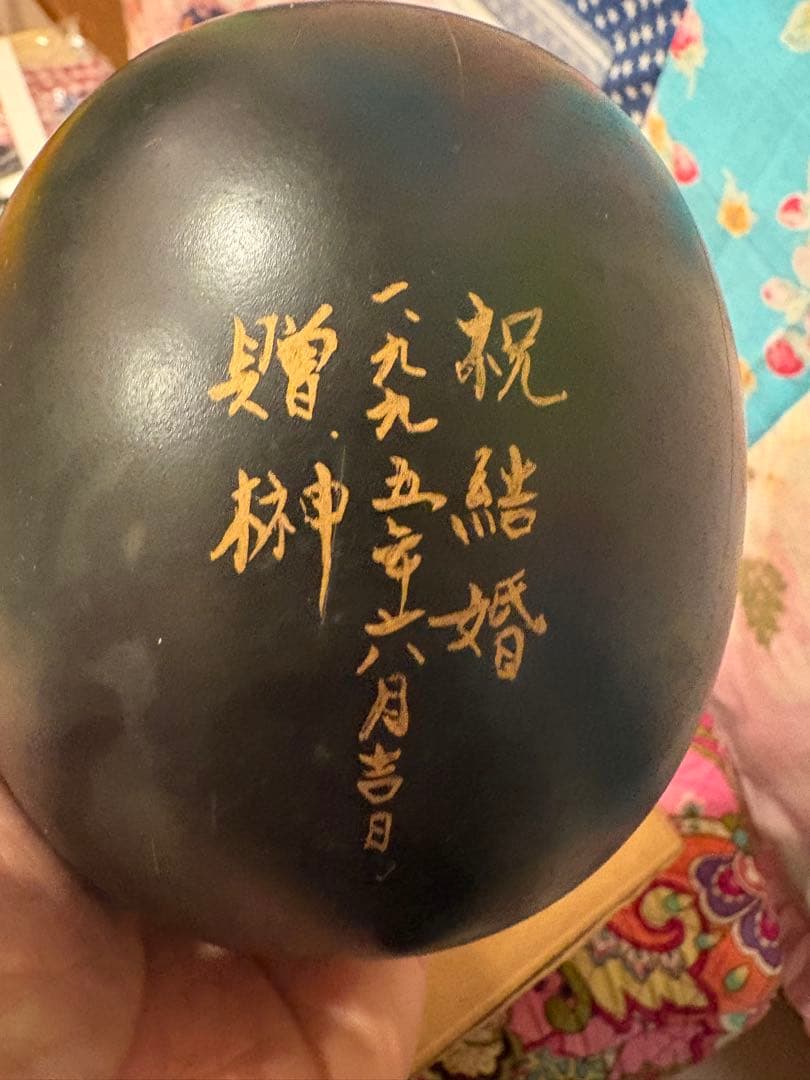 祝結婚
一、九九五年六月吉日
贈榊